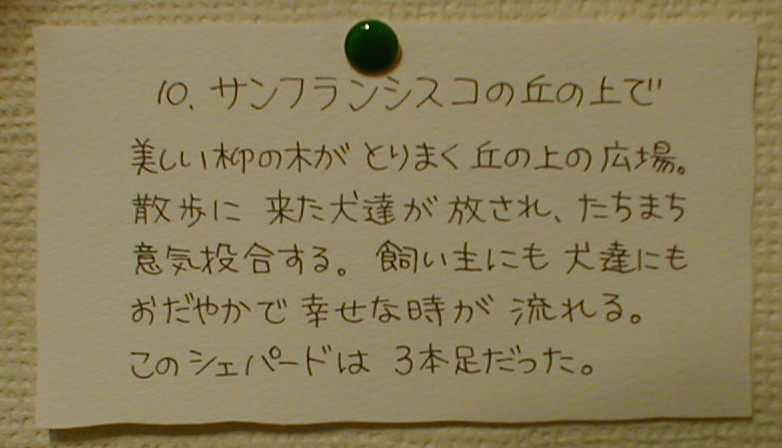 10. サンフランシスコの丘の上で
美しい柳の木がとりまく丘の上の広場。
散歩に来た犬達が放され、たちまち
意気投合する。飼い主にも犬達にも
おだやかで幸せな時が流れる。
このシェパードは3本足だった。